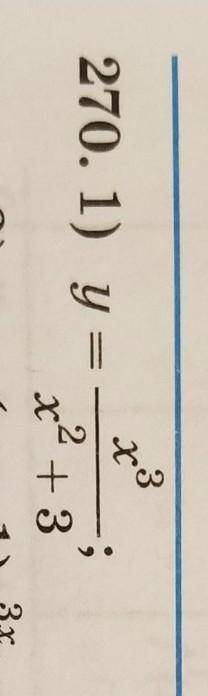 270. 1) y = x³ / (x² + 3);
3x